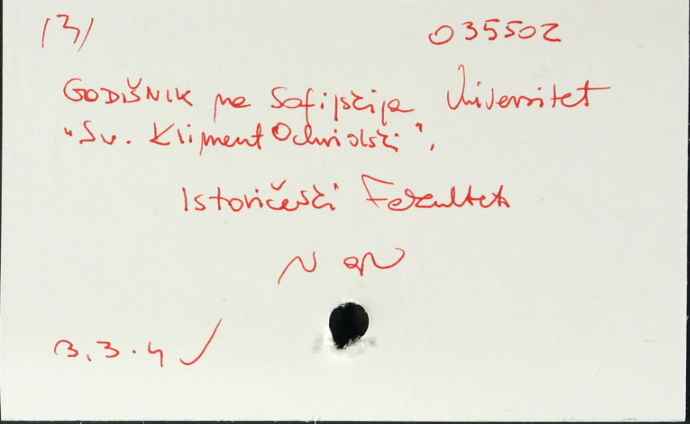 131 035502
GODIŠNIK na Sofijskija Universitet
"Sv. Kliment Ochridski",
Istoričeski Fakultet
3.3.4 ✓